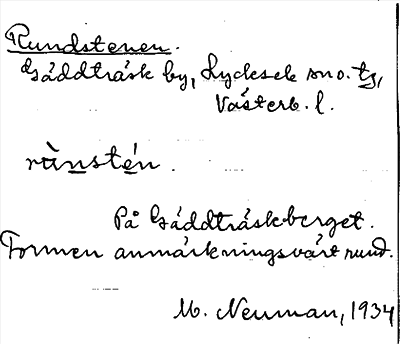 Rundstenen.
Gäddträsk by, Lycksele sn o. tg,
Västerb. l.
rùnstén.
På Gäddträskberget.
Formen anmärkningsvärt rund.
M. Neuman, 1934